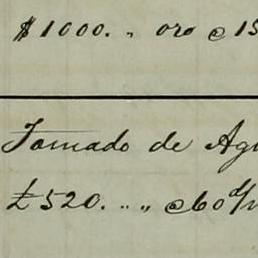 $1000. „ oro @ 15
Tomado de Agu
£520. „ „ @ 60 d/v